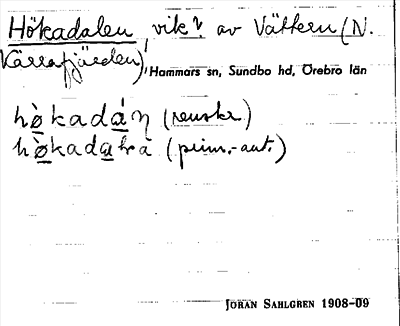 Hökadalen vik av Vättern (N.
Kärrafjärden), Hammars sn, Sundbo hd, Örebro län
(renskr.)
(prim.-ant.)
JÖRAN SAHLGREN 1908-09